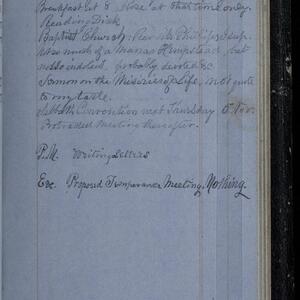 Breakfast at 8 close at that time only.
Reading Dick
Baptist Church. Rev Mr Phillips sup.
Not so much of a man as Hempstead but
not so violent, probably devoted &c
Sermon on the Miseries of Life, not quite
to my taste.
Sabbath Convention met Thursday 5. Nov.
Protracted Meeting thereafter.
P.M. Writing Letters
Eve Proposed Temperance Meeting. Nothing.